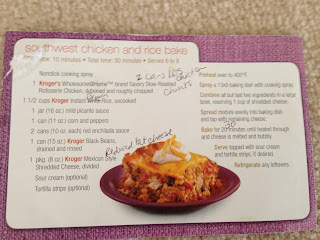 southwest chicken and rice bake
time: 10 minutes • Total time: 30 minutes • Serves 6 to 8
Nonstick cooking spray
1 Kroger's Wholesome@Home™ brand Savory Slow Roasted
Rotisserie Chicken, deboned and roughly chopped
2 cans chicken
chunks
Brown
1 1/2 cups Kroger Instant Rice, uncooked
1 jar (16 oz) mild picante sauce
1 can (11 oz) corn and peppers
2 cans (10 oz. each) red enchilada sauce
1 can (15 oz) Kroger Black Beans,
drained and rinsed
Reduced fat cheese
1 pkg. (8 oz) Kroger Mexican Style
Shredded Cheese, divided
Sour cream (optional)
Tortilla strips (optional)
Preheat oven to 400°F.
Spray a 13x9 baking dish with cooking spray.
Combine all but last two ingredients in a large
bowl, reserving 1 cup of shredded cheese.
Spread mixture evenly into baking dish
and top with remaining cheese.
30
Bake for 20 minutes until heated through
and cheese is melted and bubbly.
Serve topped with sour cream
and tortilla strips, if desired.
Refrigerate any leftovers.